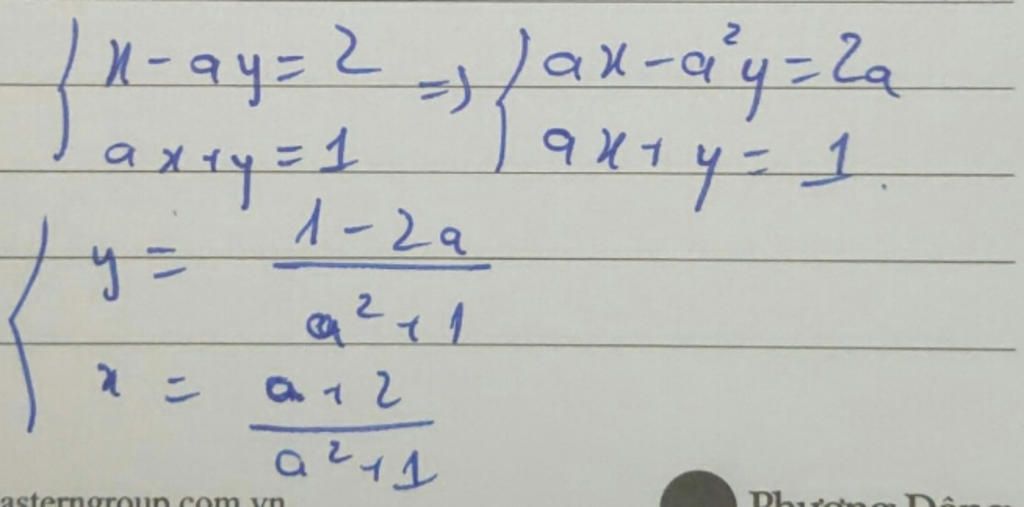 { x - ay = 2 => { ax - a²y = 2a
ax + y = 1 ax + y = 1.
{ y = (1 - 2a)/(a² + 1)
x = (a + 2)/(a² + 1)
asterngroup.com.vn Phương Đông